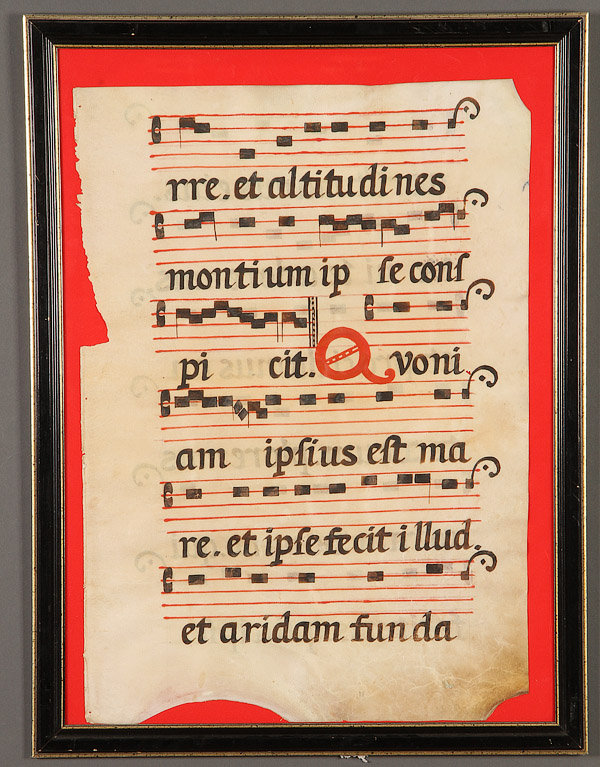 rre. et altitudines
montium ip ſe conſ
pi cit. Quoni
am ipſius eſt ma
re. et ipſe fecit illud.
et aridam funda